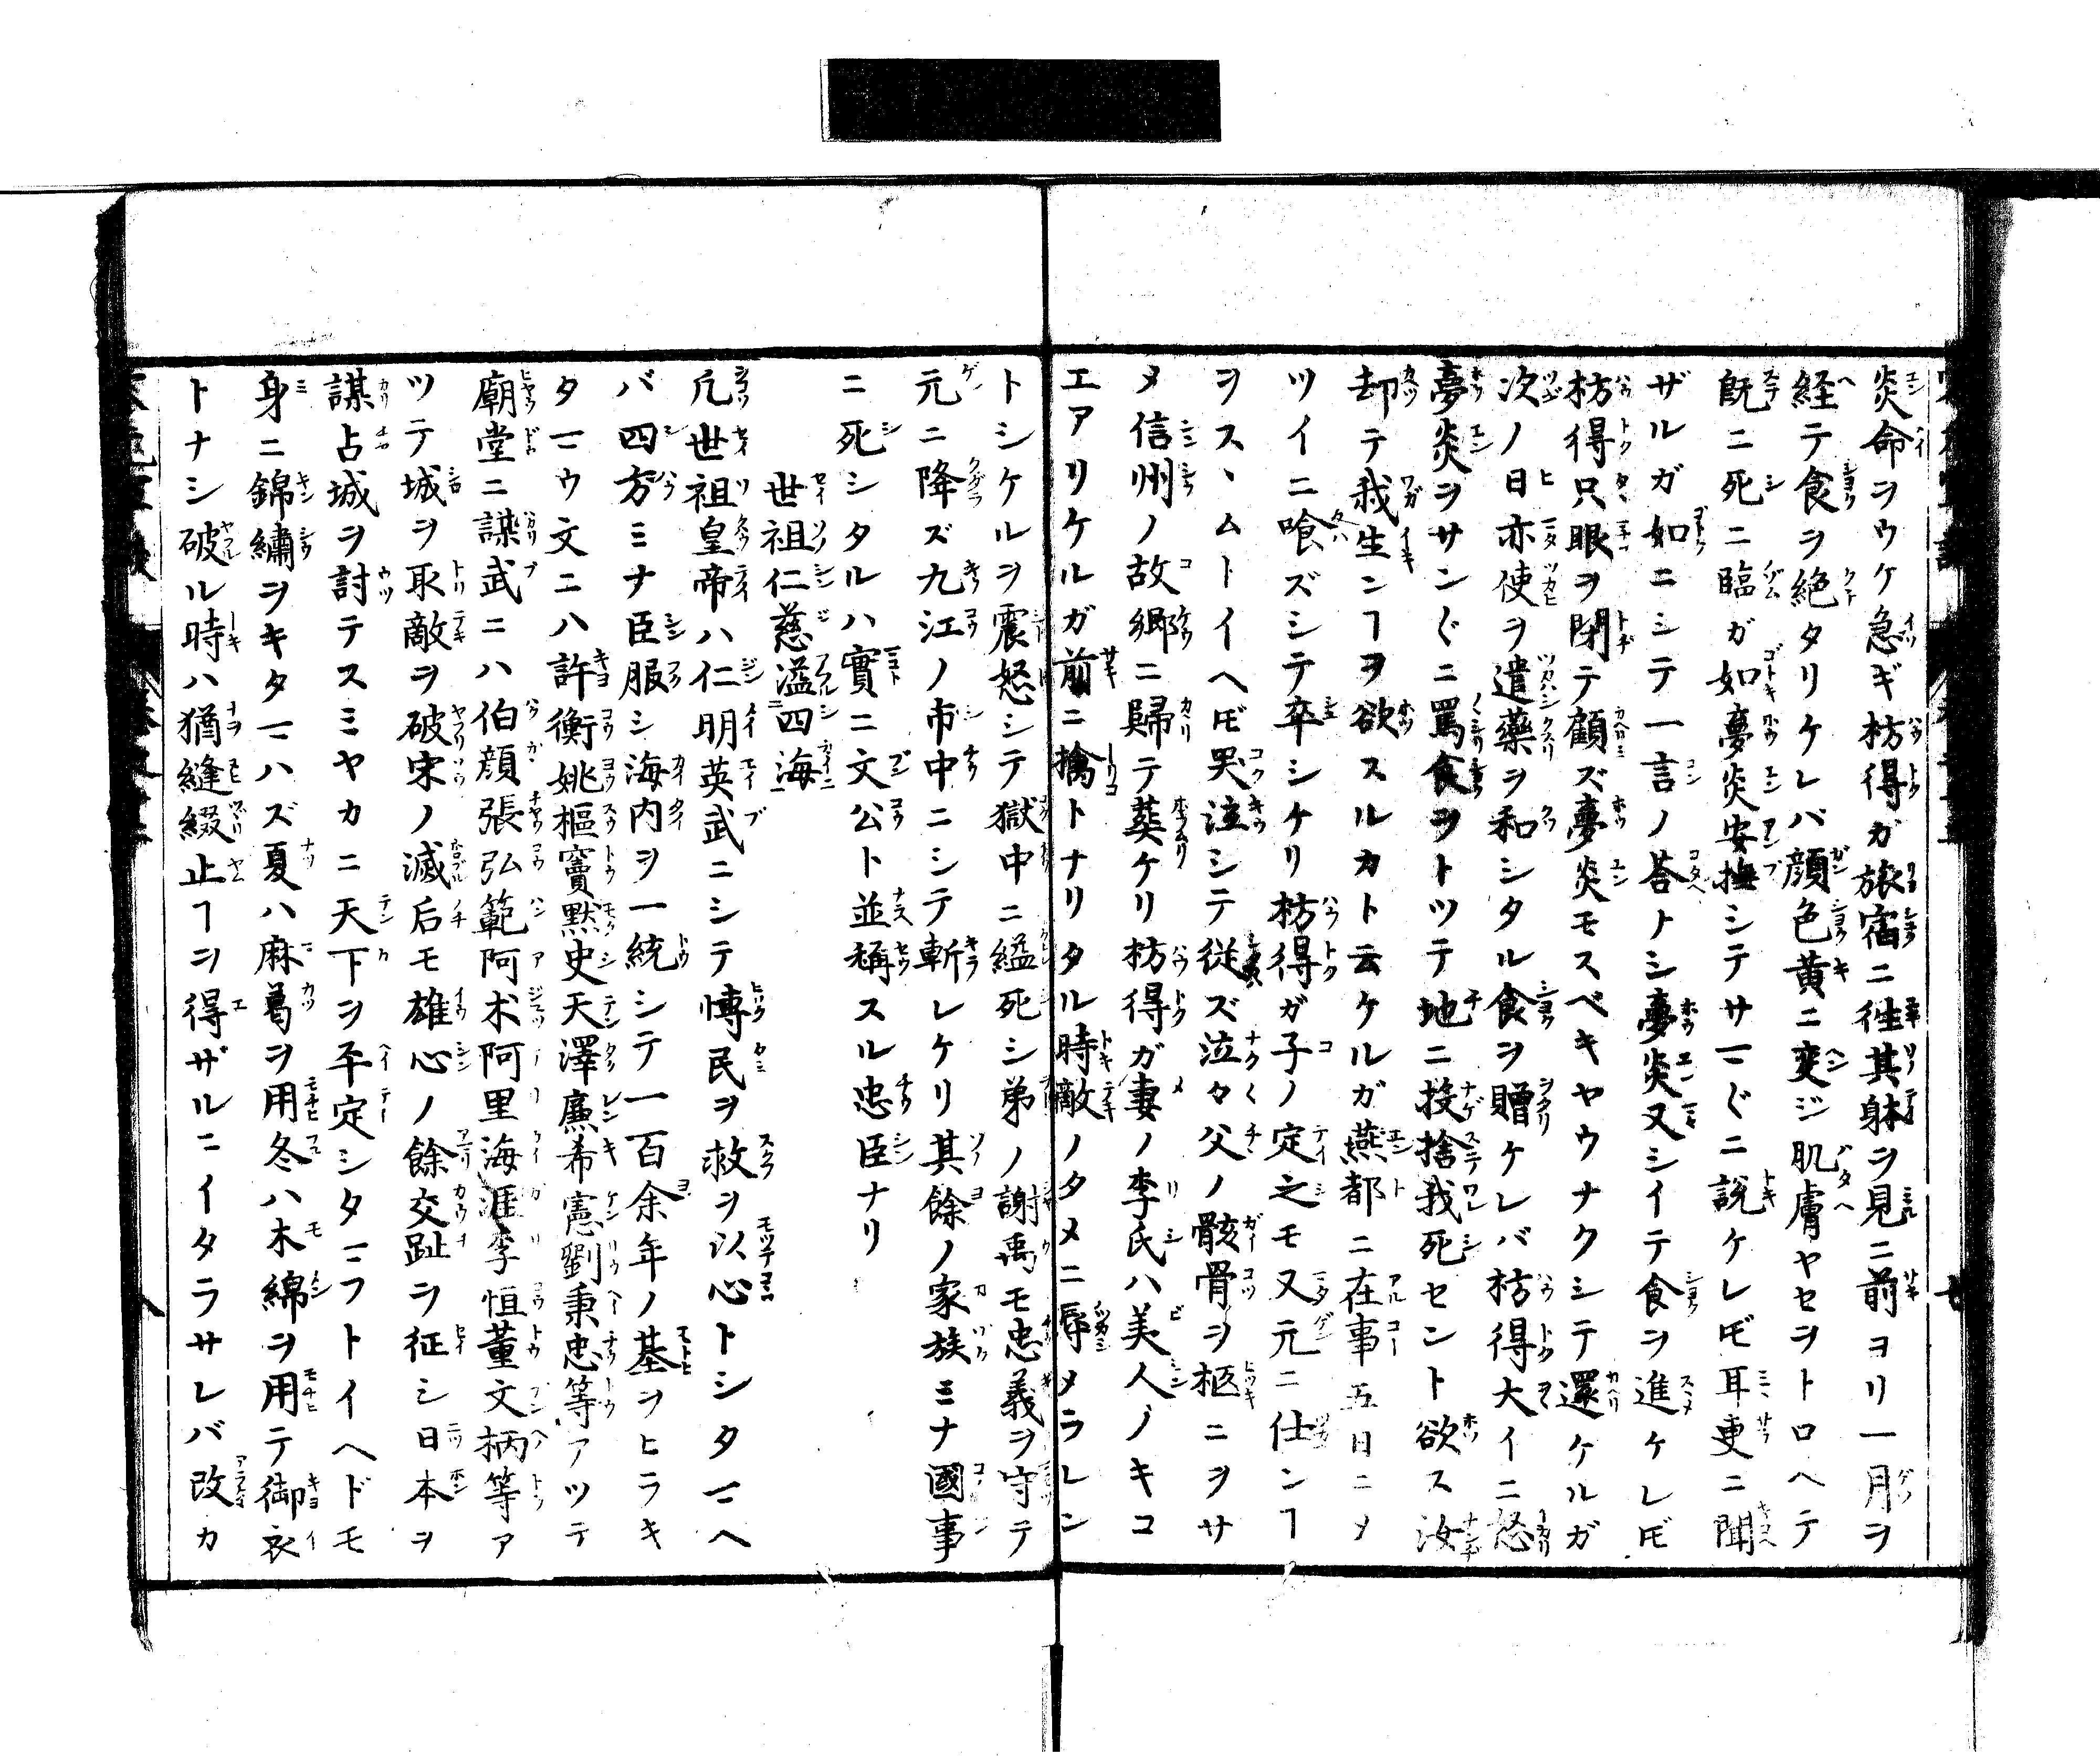 炎命ヲウケ急ギ枋得ガ旅宿ニ徃其躰ヲ見ニ前ヨリ一月ヲ
経テ食ヲ絶タリケレバ顔色黄ニ変ジ肌膚ヤセヲトロヘテ
既ニ死ニ臨ガ如夢炎安撫シテサマ〲ニ説ケレ𪜈耳更ニ聞
ザルガ如ニシテ一言ノ荅ナシ夢炎又シイテ食ヲ進ケレ𪜈
枋得只眼ヲ閉テ顧ズ夢炎モスベキヤウナクシテ還ケルガ
次ノ日亦使ヲ遣藥ヲ和シタル食ヲ贈ケレバ枋得大イニ怒
夢炎ヲサン〲ニ罵食ヲトツテ地ニ投捨我死セント欲ス汝
却テ我生ンヿヲ欲スルカト云ケルガ燕都ニ在事五日ニメ
ツイニ喰ズシテ卒シケリ枋得ガ子ノ定之モ又元ニ仕ンヿ
ヲスヽムトイヘ𪜈哭泣シテ従ズ泣々父ノ骸骨ヲ柩ニヲサ
メ信州ノ故郷ニ歸テ葬ケリ枋得ガ妻ノ李氏ハ美人ノキコ
エアリケルガ前ニ擒トナリタル時敵ノタメニ辱メラレン
トシケルヲ震怒シテ獄中ニ縊死シ弟ノ謝禹モ忠義ヲ守テ
元ニ降ズ九江ノ市中ニシテ斬レケリ其餘ノ家族ミナ國事
ニ死シタルハ實ニ文公ト並稱スル忠臣ナリ
世祖仁慈溢四海
凢世祖皇帝ハ仁明英武ニシテ愽民ヲ救ヲ以心トシタマヘ
バ四方ミナ臣服シ海内ヲ一統シテ一百余年ノ基ヲヒラキ
タマウ文ニハ許衡姚樞竇默史天澤廉希憲劉秉忠等アツテ
廟堂ニ謀武ニハ伯顔張弘範阿术阿里海涯李恒董文柄等ア
ツテ城ヲ取敵ヲ破宋ノ滅后モ雄心ノ餘交趾ヲ征シ日本ヲ
謀占城ヲ討テスミヤカニ天下ヲ平定シタマフトイヘドモ
身ニ錦繡ヲキタマハズ夏ハ麻葛ヲ用冬ハ木綿ヲ用テ御衣
トナシ破ル時ハ猶縫綴止ヿヲ得ザルニイタラサレバ改カ